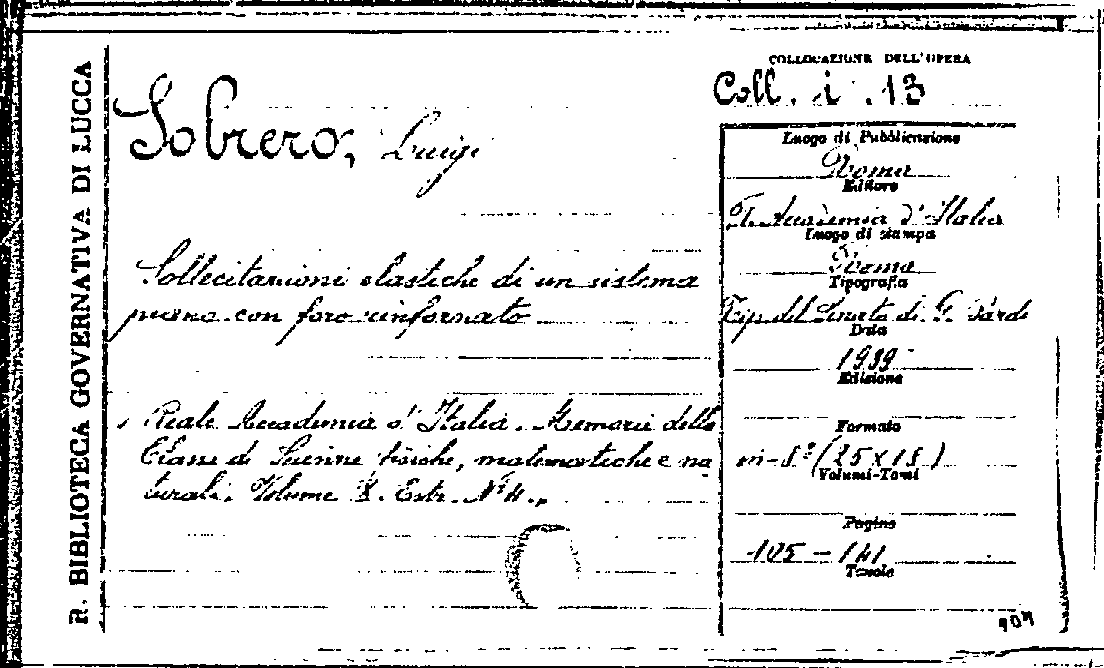 R. BIBLIOTECA GOVERNATIVA DI LUCCA
COLLOCAZIONE DELL'OPERA
Coll. i. 13
Sobrero, Luigi
Sollecitazioni elastiche di un sistema
piano con foro rinformato
Reale Accademia d'Italia. Memorie della
Classe di Scienze fisiche, matematiche e na
turali. Volume X. Estr. N° 4.
Luogo di Pubblicazione
Roma
Editore
R. Accademia d'Italia
Luogo di stampa
Roma
Tipografia
Tip. del Senato di G. Bardi
Data
1939
Edizione
Formato
in-8° (25x18)
Volumi-Tomi
Pagine
105-141
Tavole